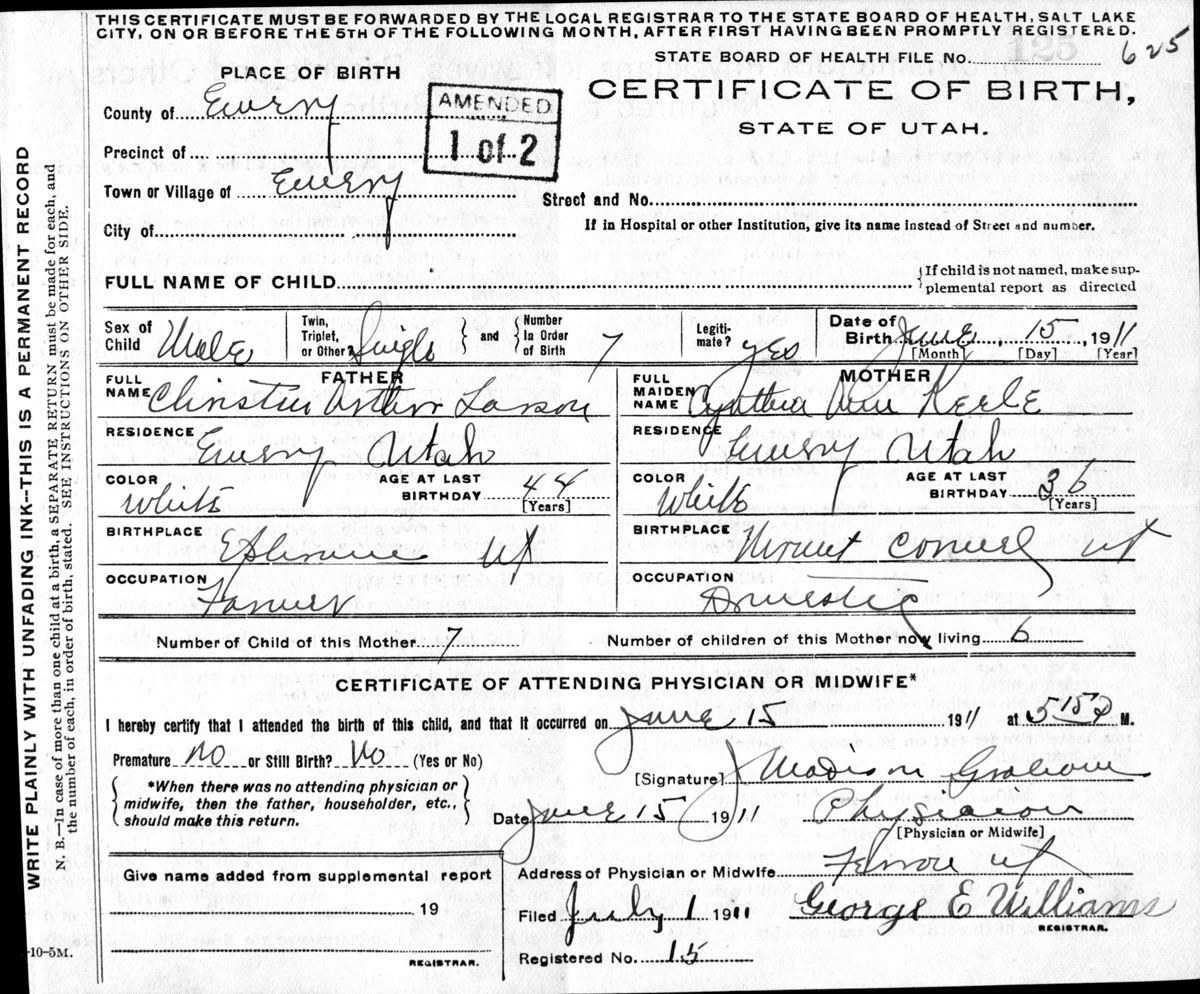 THIS CERTIFICATE MUST BE FORWARDED BY THE LOCAL REGISTRAR TO THE STATE BOARD OF HEALTH, SALT LAKE
CITY, ON OR BEFORE THE 5TH OF THE FOLLOWING MONTH, AFTER FIRST HAVING BEEN PROMPTLY REGISTERED.
STATE BOARD OF HEALTH FILE No. 625
PLACE OF BIRTH
CERTIFICATE OF BIRTH,
STATE OF UTAH.
County of Emery
AMENDED
1 of 2
Precinct of
Town or Village of Emery
Street and No.
City of
If in Hospital or other Institution, give its name instead of Street and number.
FULL NAME OF CHILD
{If child is not named, make sup-
plemental report as directed
Sex of Child Male
Twin, Triplet, or Other? Single } and { Number In Order of Birth 7
Legiti-mate? yes
Date of Birth June 15, 1911
[Month] [Day] [Year]
FATHER
FULL NAME Arthur Larson
MOTHER
FULL MAIDEN NAME Cynthia Ann
RESIDENCE Emery Utah
RESIDENCE Emery Utah
COLOR White
AGE AT LAST BIRTHDAY 44
[Years]
COLOR White
AGE AT LAST BIRTHDAY 36
[Years]
BIRTHPLACE Ut
BIRTHPLACE Mount Ut
OCCUPATION Farmer
OCCUPATION Domestic
Number of Child of this Mother 7
Number of children of this Mother now living 6
CERTIFICATE OF ATTENDING PHYSICIAN OR MIDWIFE*
I hereby certify that I attended the birth of this child, and that it occurred on June 15 1911 at 5 15 P M.
Premature No or Still Birth? No (Yes or No)
{*When there was no attending physician or
midwife, then the father, householder, etc.,
should make this return.}
[Signature] Madison Graham
Date June 15 1911
Physician
[Physician or Midwife]
Give name added from supplemental report
19
REGISTRAR.
Address of Physician or Midwife Ferron Ut
Filed July 1 1911
George E Williams
REGISTRAR.
Registered No. 15
-10-5M.
WRITE PLAINLY WITH UNFADING INK--THIS IS A PERMANENT RECORD
N. B.--In case of more than one child at a birth, a SEPARATE RETURN must be made for each, and
the number of each, in order of birth, stated. SEE INSTRUCTIONS ON OTHER SIDE.